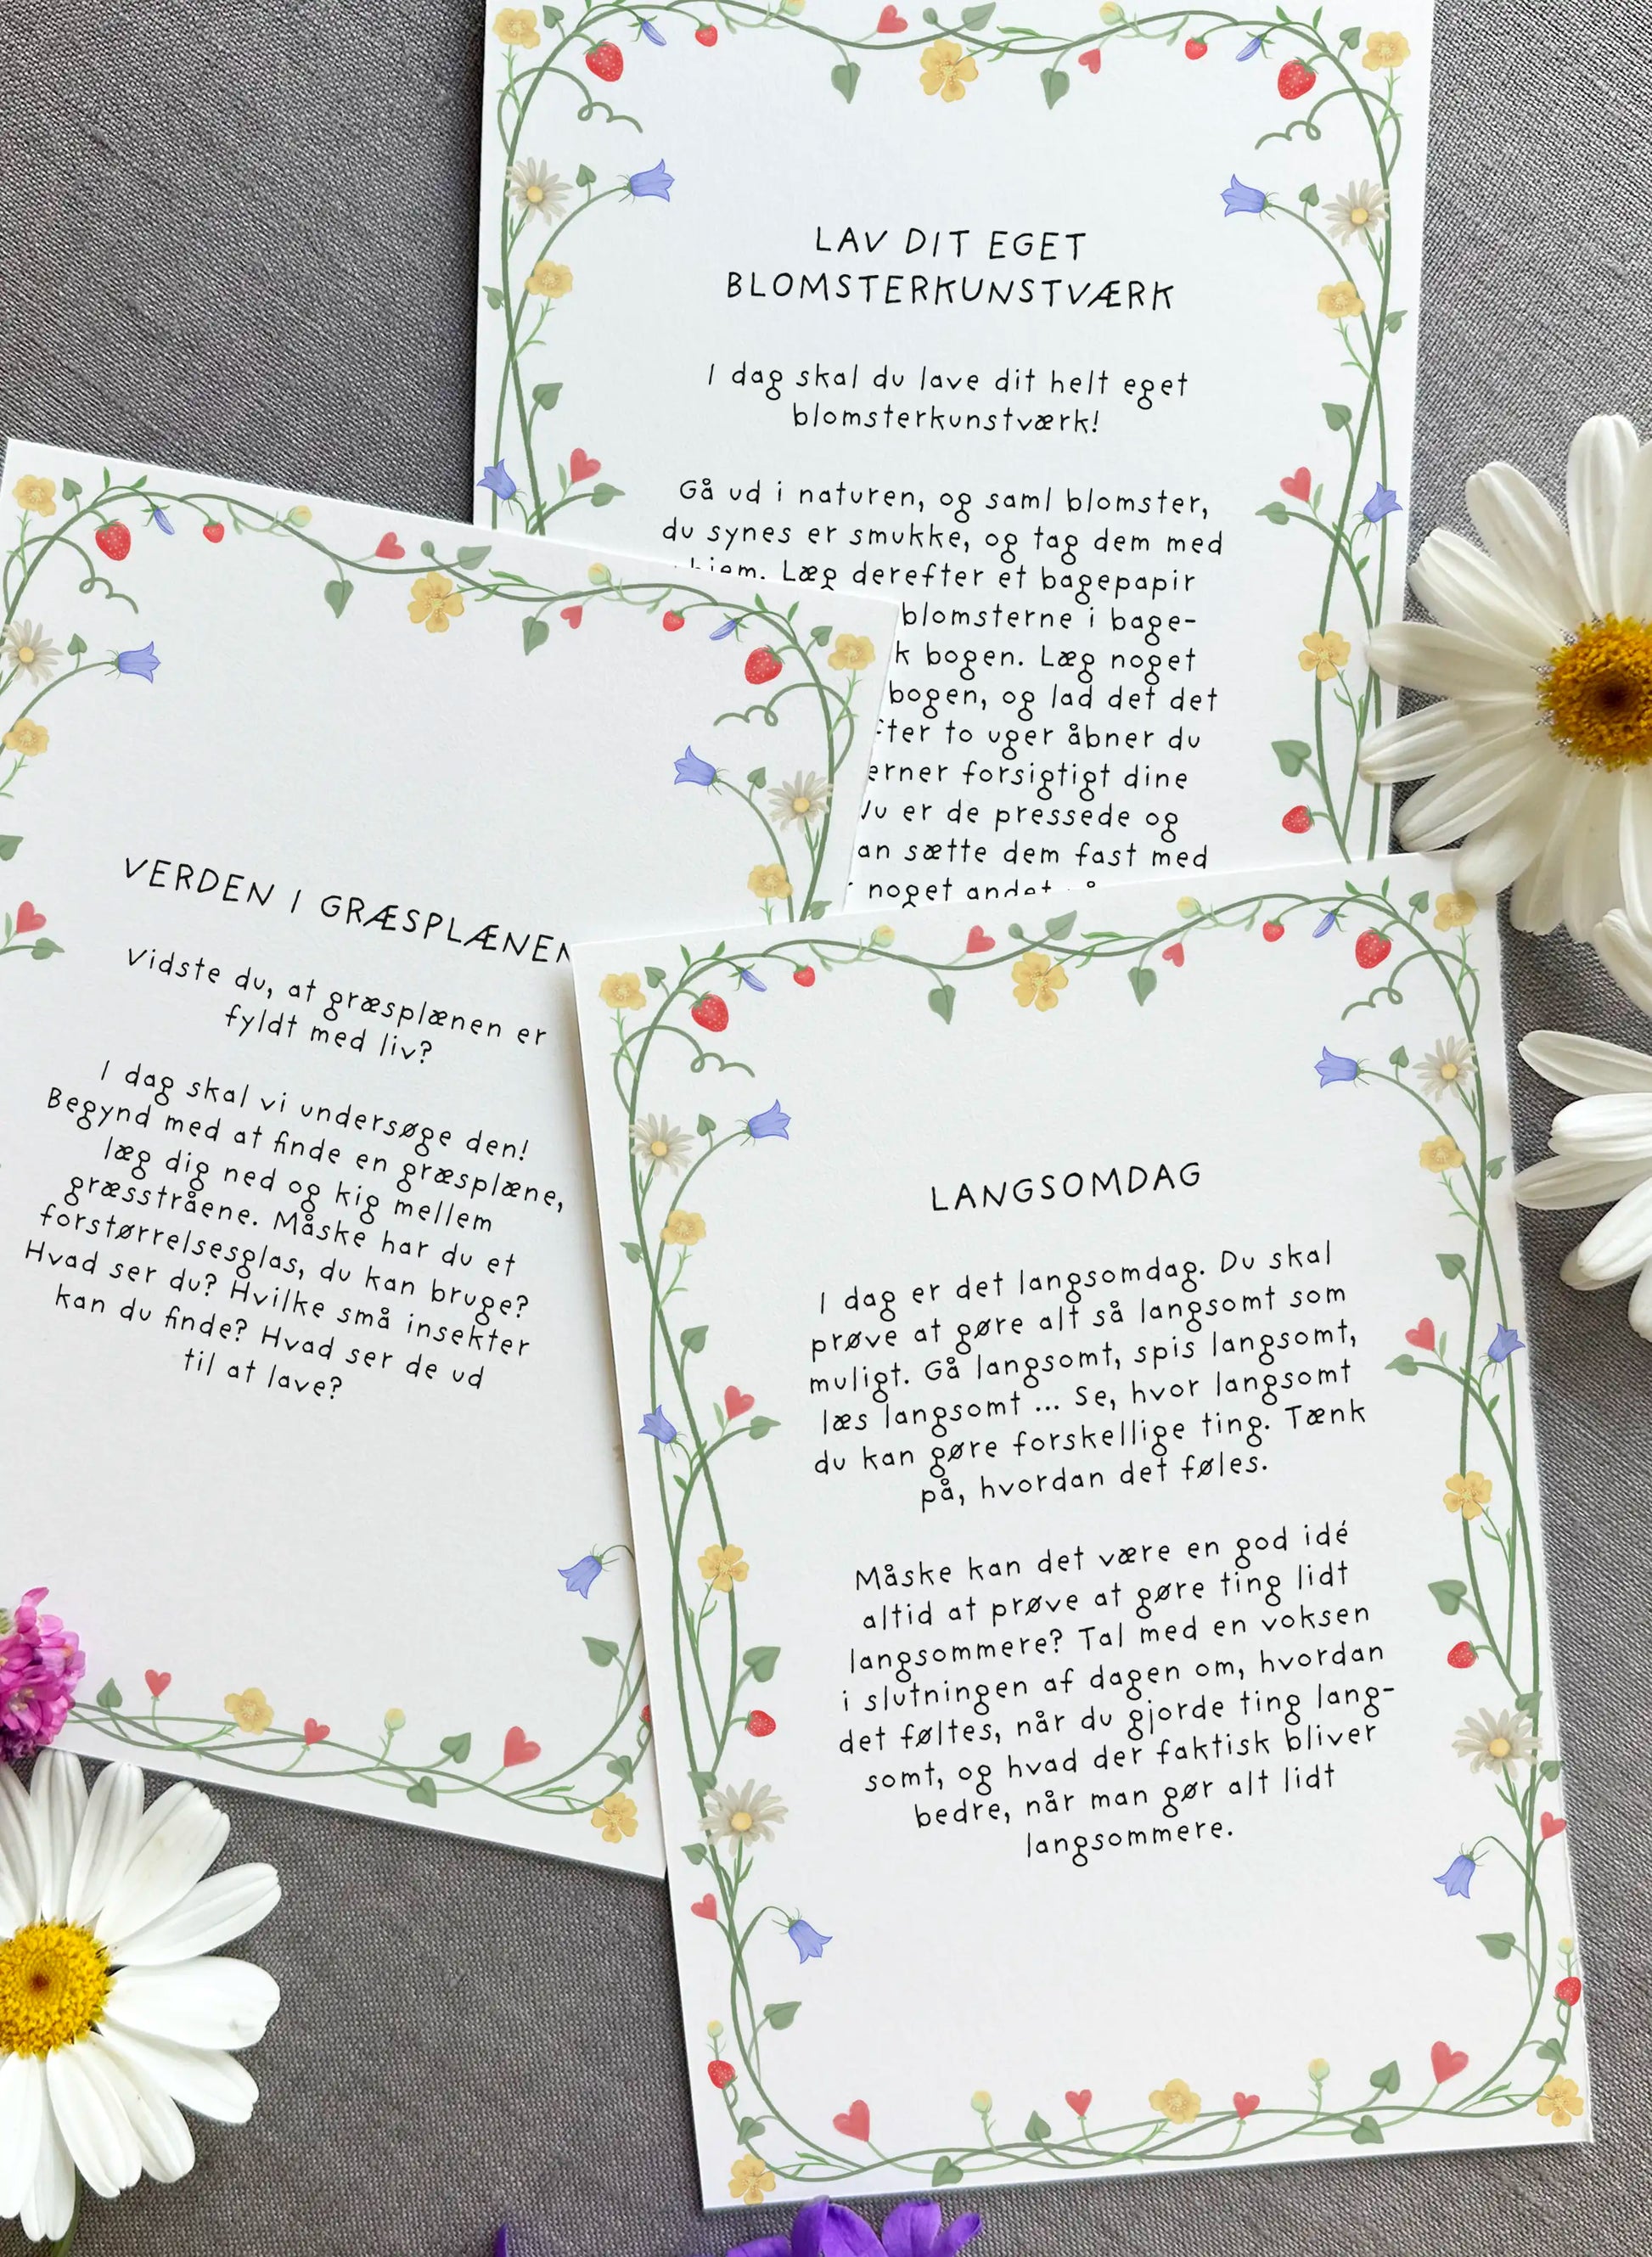 LAV DIT EGET
BLOMSTERKUNSTVÆRK
I dag skal du lave dit helt eget
blomsterkunstværk!
Gå ud i naturen, og saml blomster,
du synes er smukke, og tag dem med
hjem. Læg derefter et bagepapir
blomsterne i bage-
bogen. Læg noget
bogen, og lad det det
to uger åbner du
forsigtigt dine
er de pressede og
sætte dem fast med
noget andet
VERDEN I GRÆSPLÆNEN
Vidste du, at græsplænen er
fyldt med liv?
I dag skal vi undersøge den!
Begynd med at finde en græsplæne,
læg dig ned og kig mellem
græsstråene. Måske har du et
forstørrelsesglas, du kan bruge?
Hvad ser du? Hvilke små insekter
kan du finde? Hvad ser de ud
til at lave?
LANGSOMDAG
I dag er det langsomdag. Du skal
prøve at gøre alt så langsomt som
muligt. Gå langsomt, spis langsomt,
læs langsomt ... Se, hvor langsomt
du kan gøre forskellige ting. Tænk
på, hvordan det føles.
Måske kan det være en god idé
altid at prøve at gøre ting lidt
langsommere? Tal med en voksen
i slutningen af dagen om, hvordan
det føltes, når du gjorde ting lang-
somt, og hvad der faktisk bliver
bedre, når man gør alt lidt
langsommere.